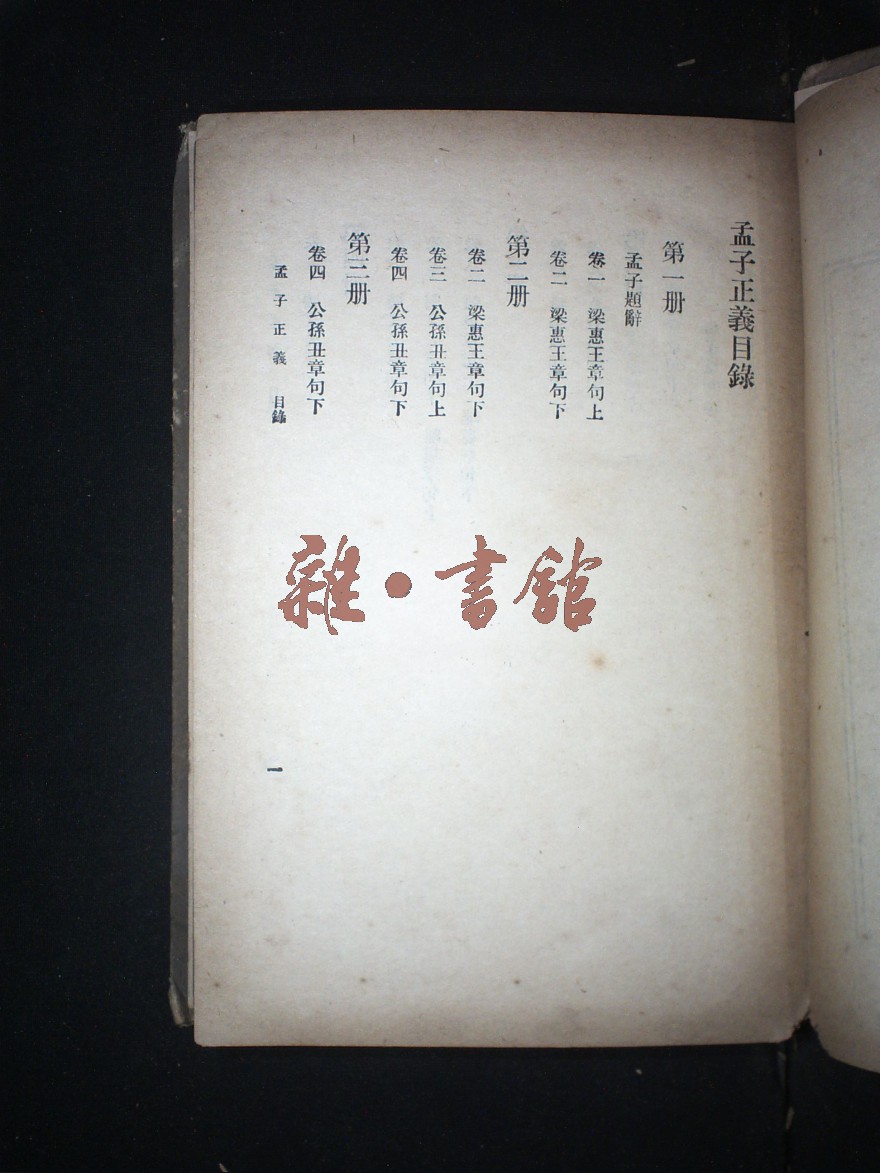 孟子正義目錄
第一册
孟子題辭
卷一　梁惠王章句上
卷二　梁惠王章句下
第二册
卷二　梁惠王章句下
卷三　公孫丑章句上
卷四　公孫丑章句下
第三册
卷四　公孫丑章句下
孟子正義　目錄
一
雜·書館